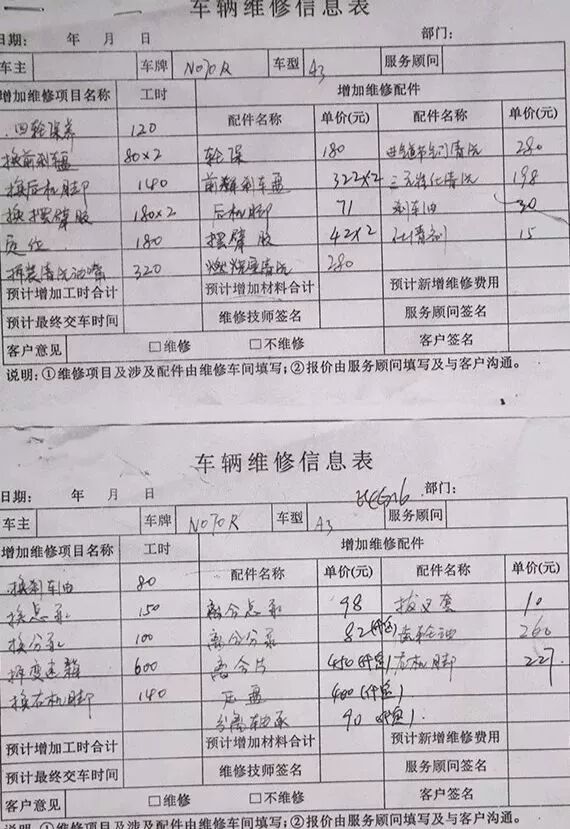 车辆维修信息表
日期: 年 月 日 部门:
车主 车牌 N070R 车型 A3 服务顾问
增加维修项目名称 工时 增加维修配件
配件名称 单价(元) 配件名称 单价(元)
四轮保养 120
换前刹车盘 80×2 轮保 180 清洗 280
换后机脚 140 前刹车盘 322×2 三元清洗 198
换摆臂胶 180×2 后机脚 71 刹车油 30
定位 180 摆臂胶 42×2 15
拆装清洗油嘴 320 燃烧室清洗 280
预计增加工时合计 预计增加材料合计 预计新增维修费用
预计最终交车时间 维修技师签名 服务顾问签名
客户意见 □维修 □不维修 客户签名
说明:①维修项目及涉及配件由维修车间填写;②报价由服务顾问填写及与客户沟通。
车辆维修信息表
日期: 年 月 日 部门:
车主 车牌 N070R 车型 A3 服务顾问
增加维修项目名称 工时 增加维修配件
配件名称 单价(元) 配件名称 单价(元)
换刹车油 80
换总泵 150 离合总泵 98 拔叉套 10
换分泵 100 离合分泵 82 齿轮油 260
拆变速箱 600 离合片 450 右机脚 227
换右机脚 140 压盘 400
分离轴承 90
预计增加工时合计 预计增加材料合计 预计新增维修费用
预计最终交车时间 维修技师签名 服务顾问签名
客户意见 □维修 □不维修 客户签名
说明:①维修项目及涉及配件由维修车间填写;②报价由服务顾问填写及与客户沟通。